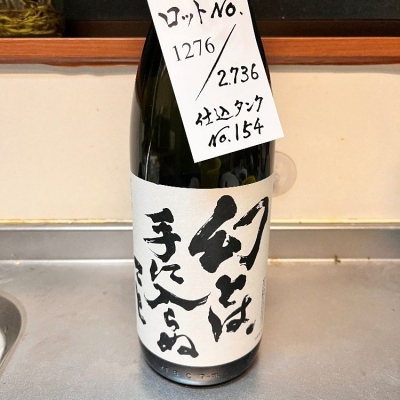 ロットNo.
1276/2.736
仕込タンク
No.154
幻とは、
手に入らぬ
こと